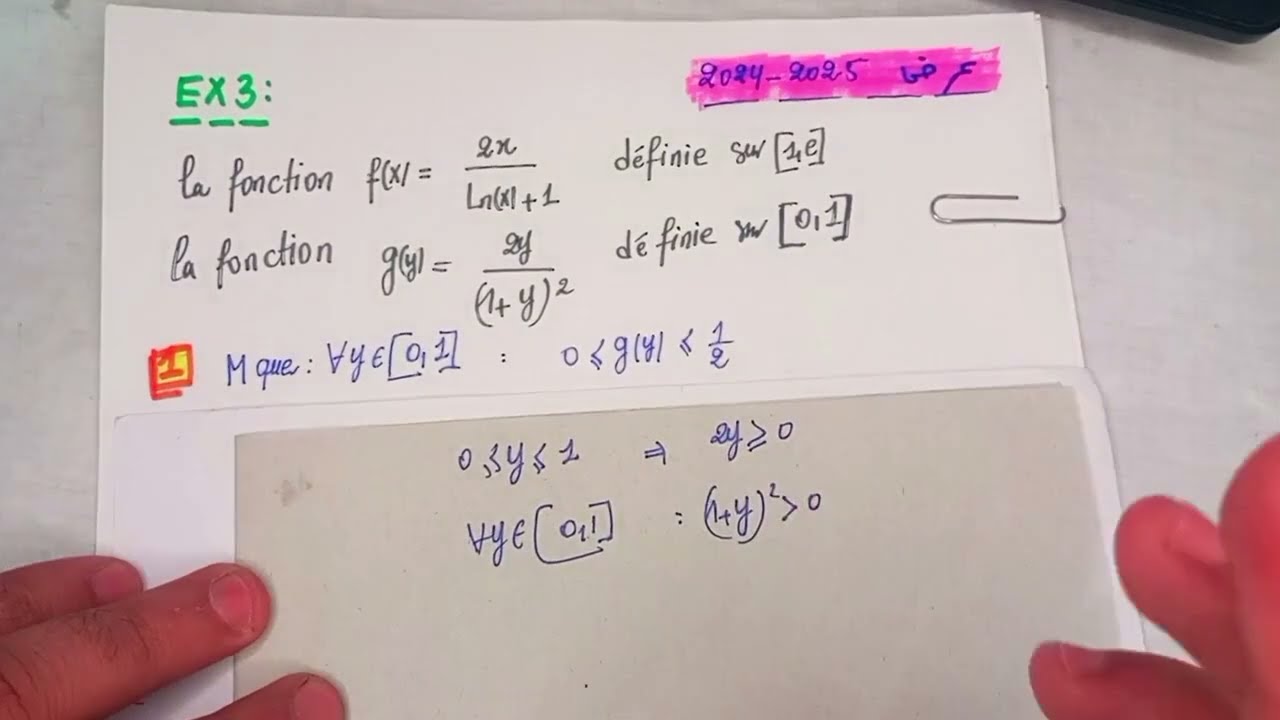 EX3:
2024-2025
la fonction f(x) = 2x / Ln(x)+1 définie sur [1,e]
la fonction g(y) = 2y / (1+y)² définie sur [0,1]
1 M que: ∀y∈[0,1] : 0 ⩽ g(y) ⩽ 1/2
0 ⩽ y ⩽ 1 ⇒ 2y ⩾ 0
∀y∈[0,1] : (1+y)² > 0